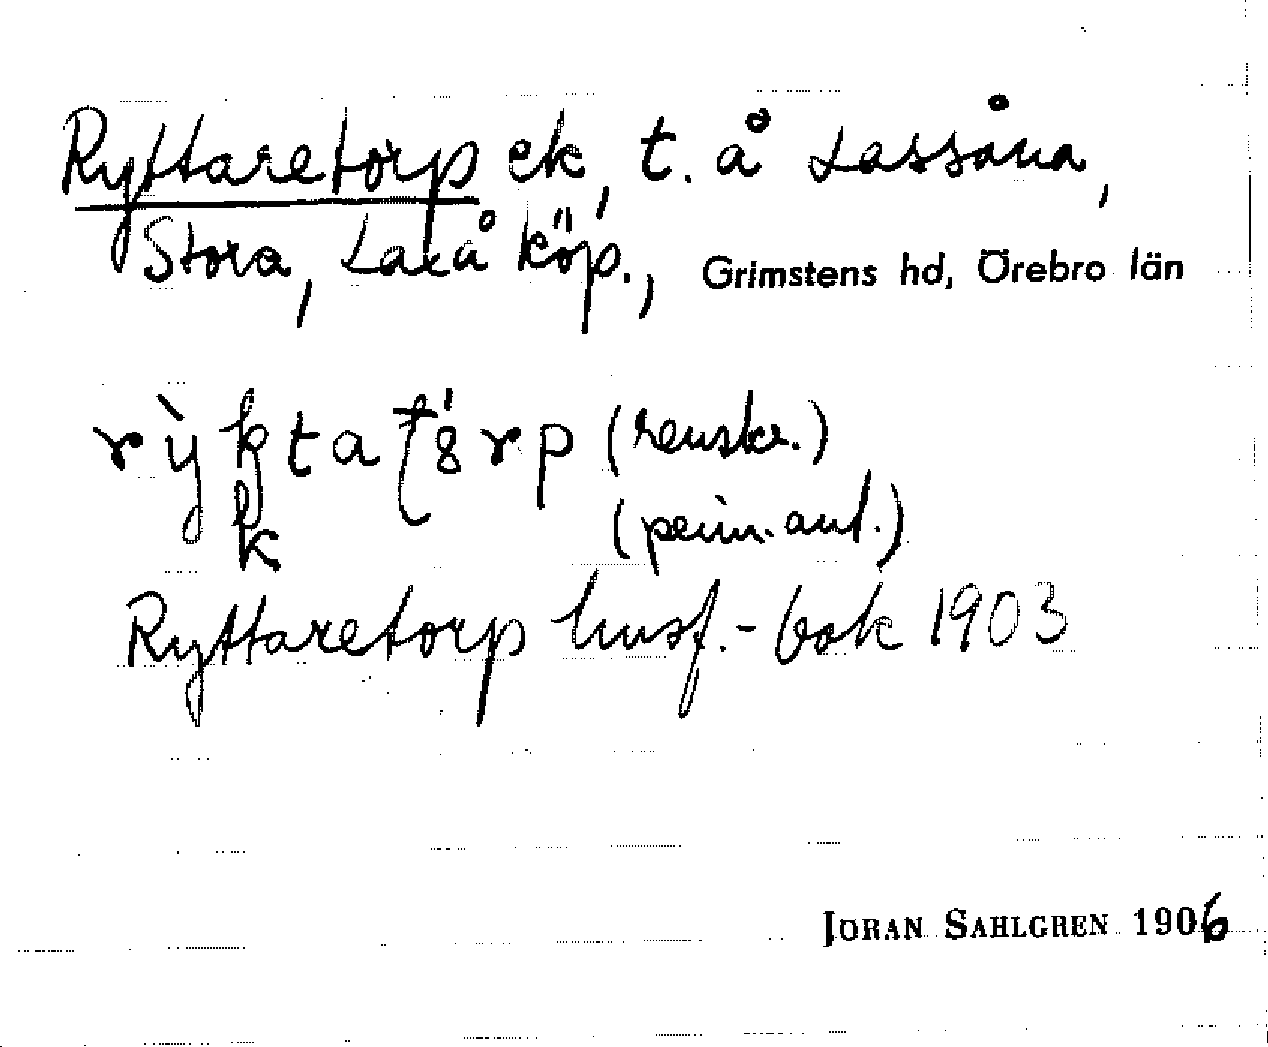 Ryttaretorp ek, t. å Lassåna,
Stora, Laxå köp., Grimstens hd, Örebro län
(renskr.)
k (penn. ant.)
Ryttaretorp husf.-bok 1903
JÖRAN SAHLGREN 1906